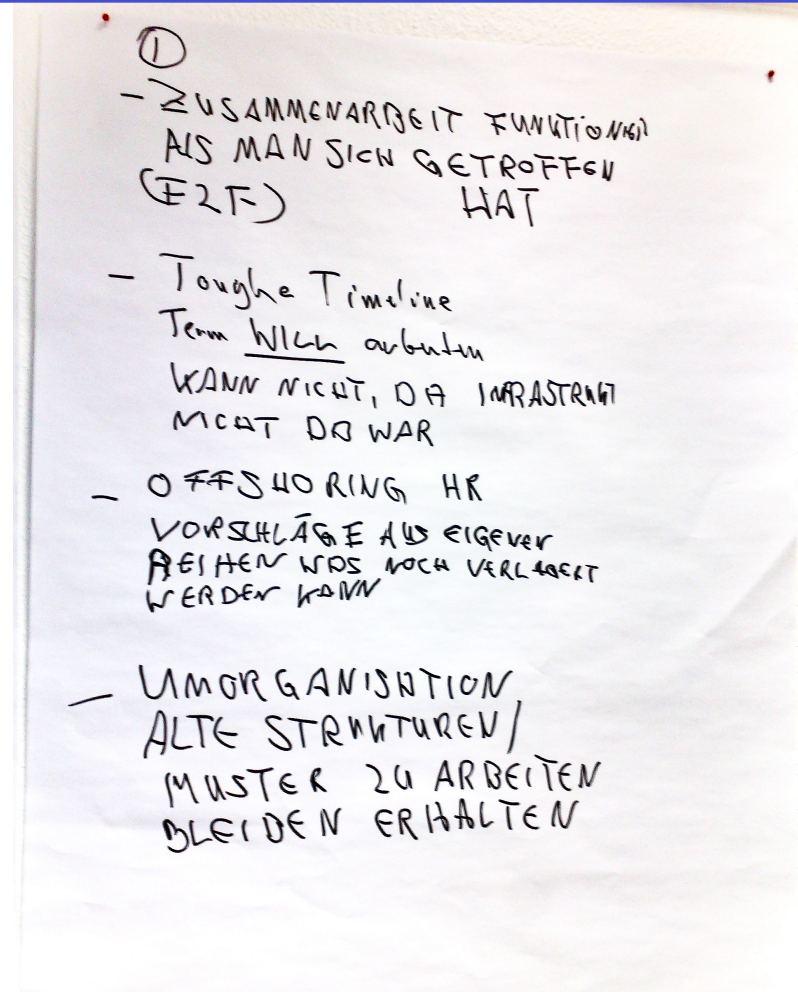 ①
- ZUSAMMENARBEIT FUNKTIONIERT
ALS MAN SICH GETROFFEN
(F2F) HAT
- Toughe Timeline
Team WILL arbeiten
KANN NICHT, DA INFRASTRUKT
NICHT DA WAR
- OFFSHORING HR
VORSCHLÄGE AUS EIGENER
REIHEN WAS NOCH VERLAGERT
WERDEN KANN
- UMORGANISATION
ALTE STRUKTUREN/
MUSTER ZU ARBEITEN
BLEIBEN ERHALTEN